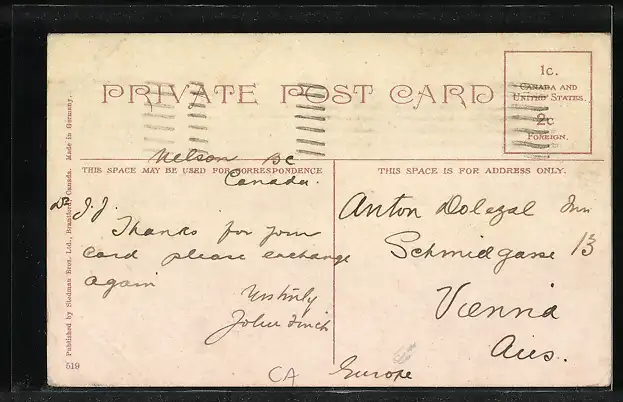 PRIVATE POST CARD
1c.
CANADA AND
UNITED STATES.
2c
FOREIGN.
Nelson BC
Canada.
THIS SPACE MAY BE USED FOR CORRESPONDENCE
THIS SPACE IS FOR ADDRESS ONLY.
Dr J.J.
Thanks for your
card please exchange
again
John Finch
Anton Dolezal
Schmidgasse 13
Vienna
Aus.
Europe
CA
519
Published by Stedman Bros. Ltd., Brantford, Canada. Made in Germany.